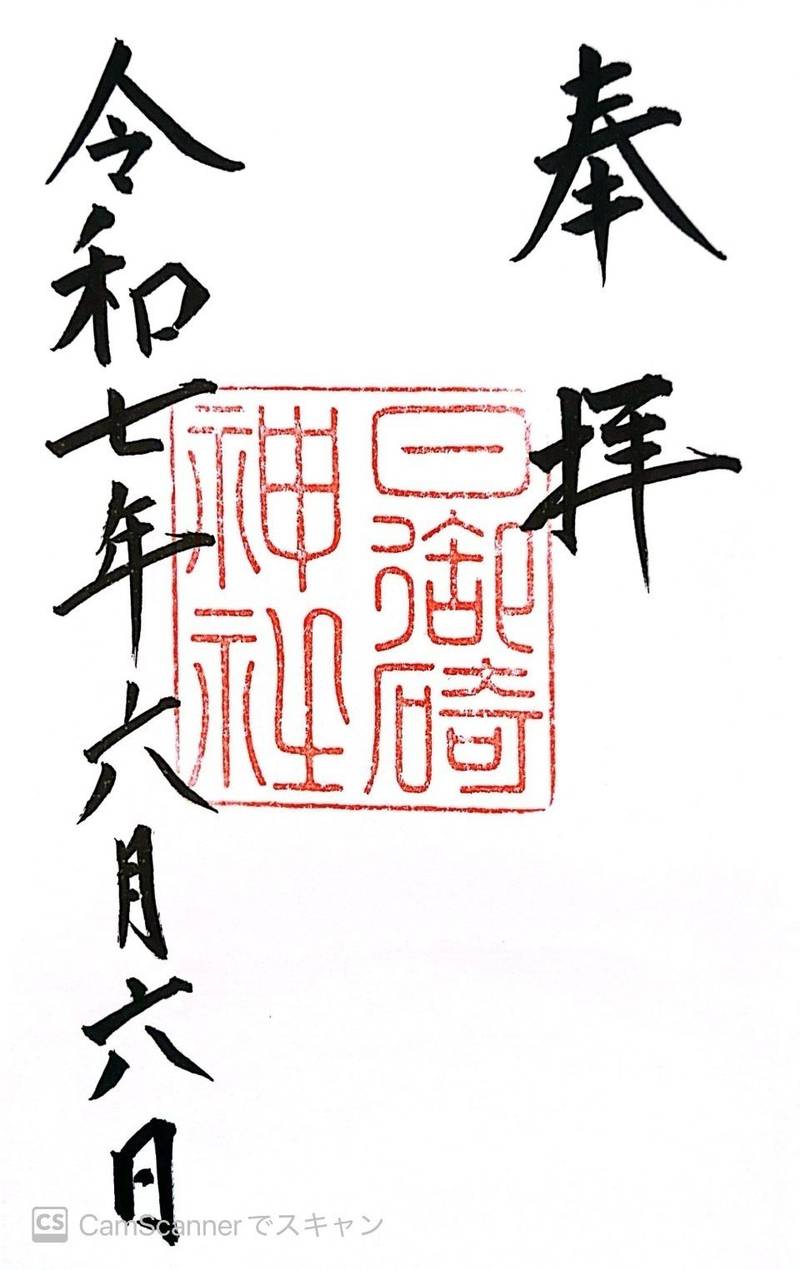 奉拝
日御碕
神社
令和七年六月六日
CS CamScannerでスキャン